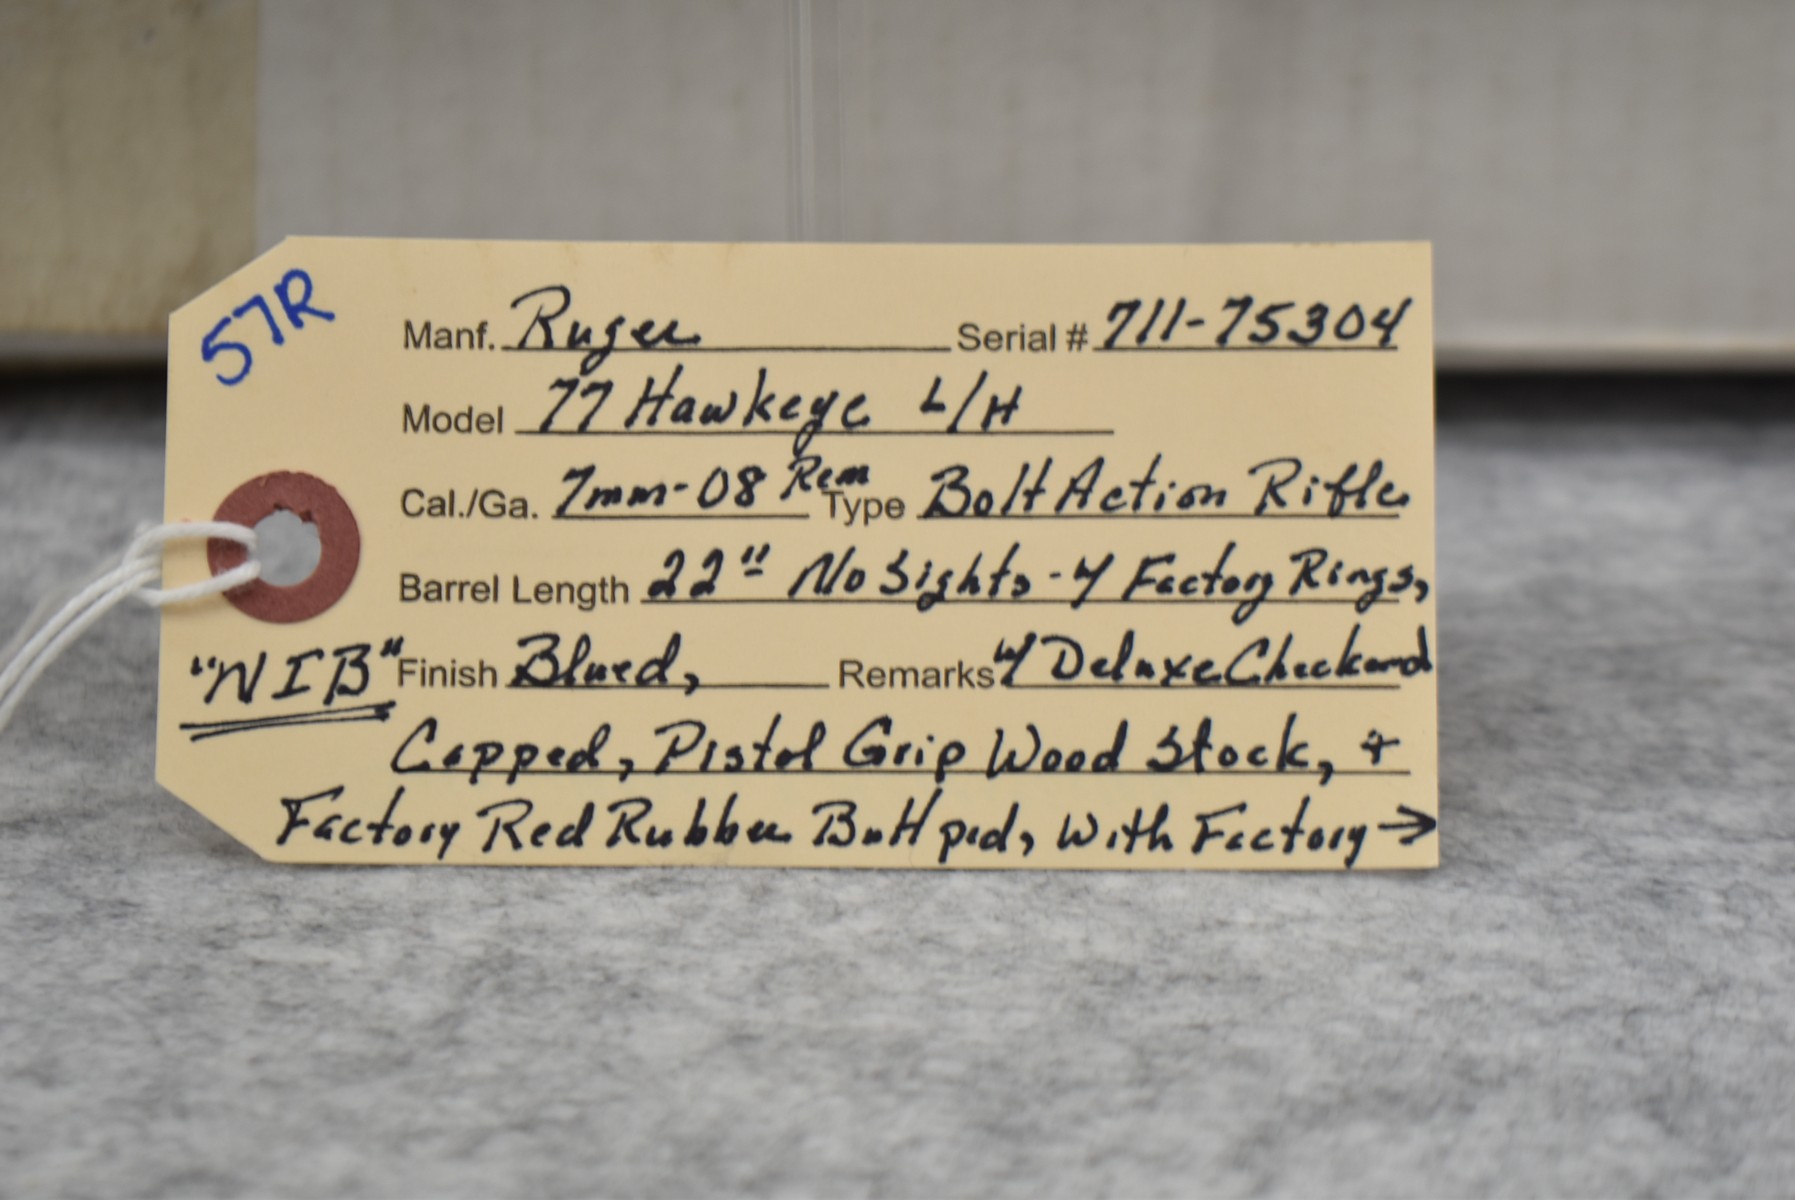 57R
Manf. Ruger Serial # 711-75304
Model 77 Hawkeye L/H
Cal./Ga. 7mm-08 Rem Type Bolt Action Rifle
Barrel Length 22" No Sights - w/ Factory Rings,
"NIB" Finish Blued, Remarks w/ Deluxe Checkered
Capped, Pistol Grip Wood Stock, +
Factory Red Rubber Buttpad, With Factory →